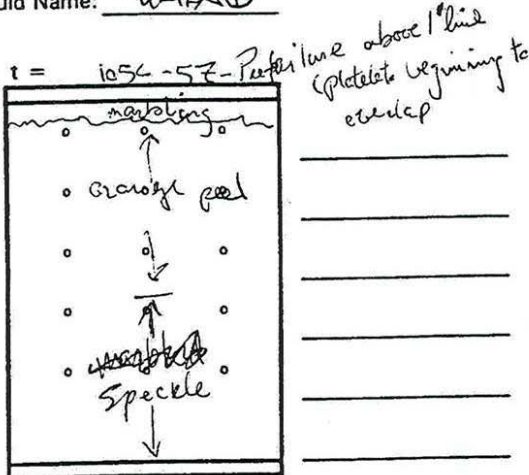 uid Name:
t = - Prefailure above 1" line
(platelets beginning to
overlap
marbling
orange peel
Speckle